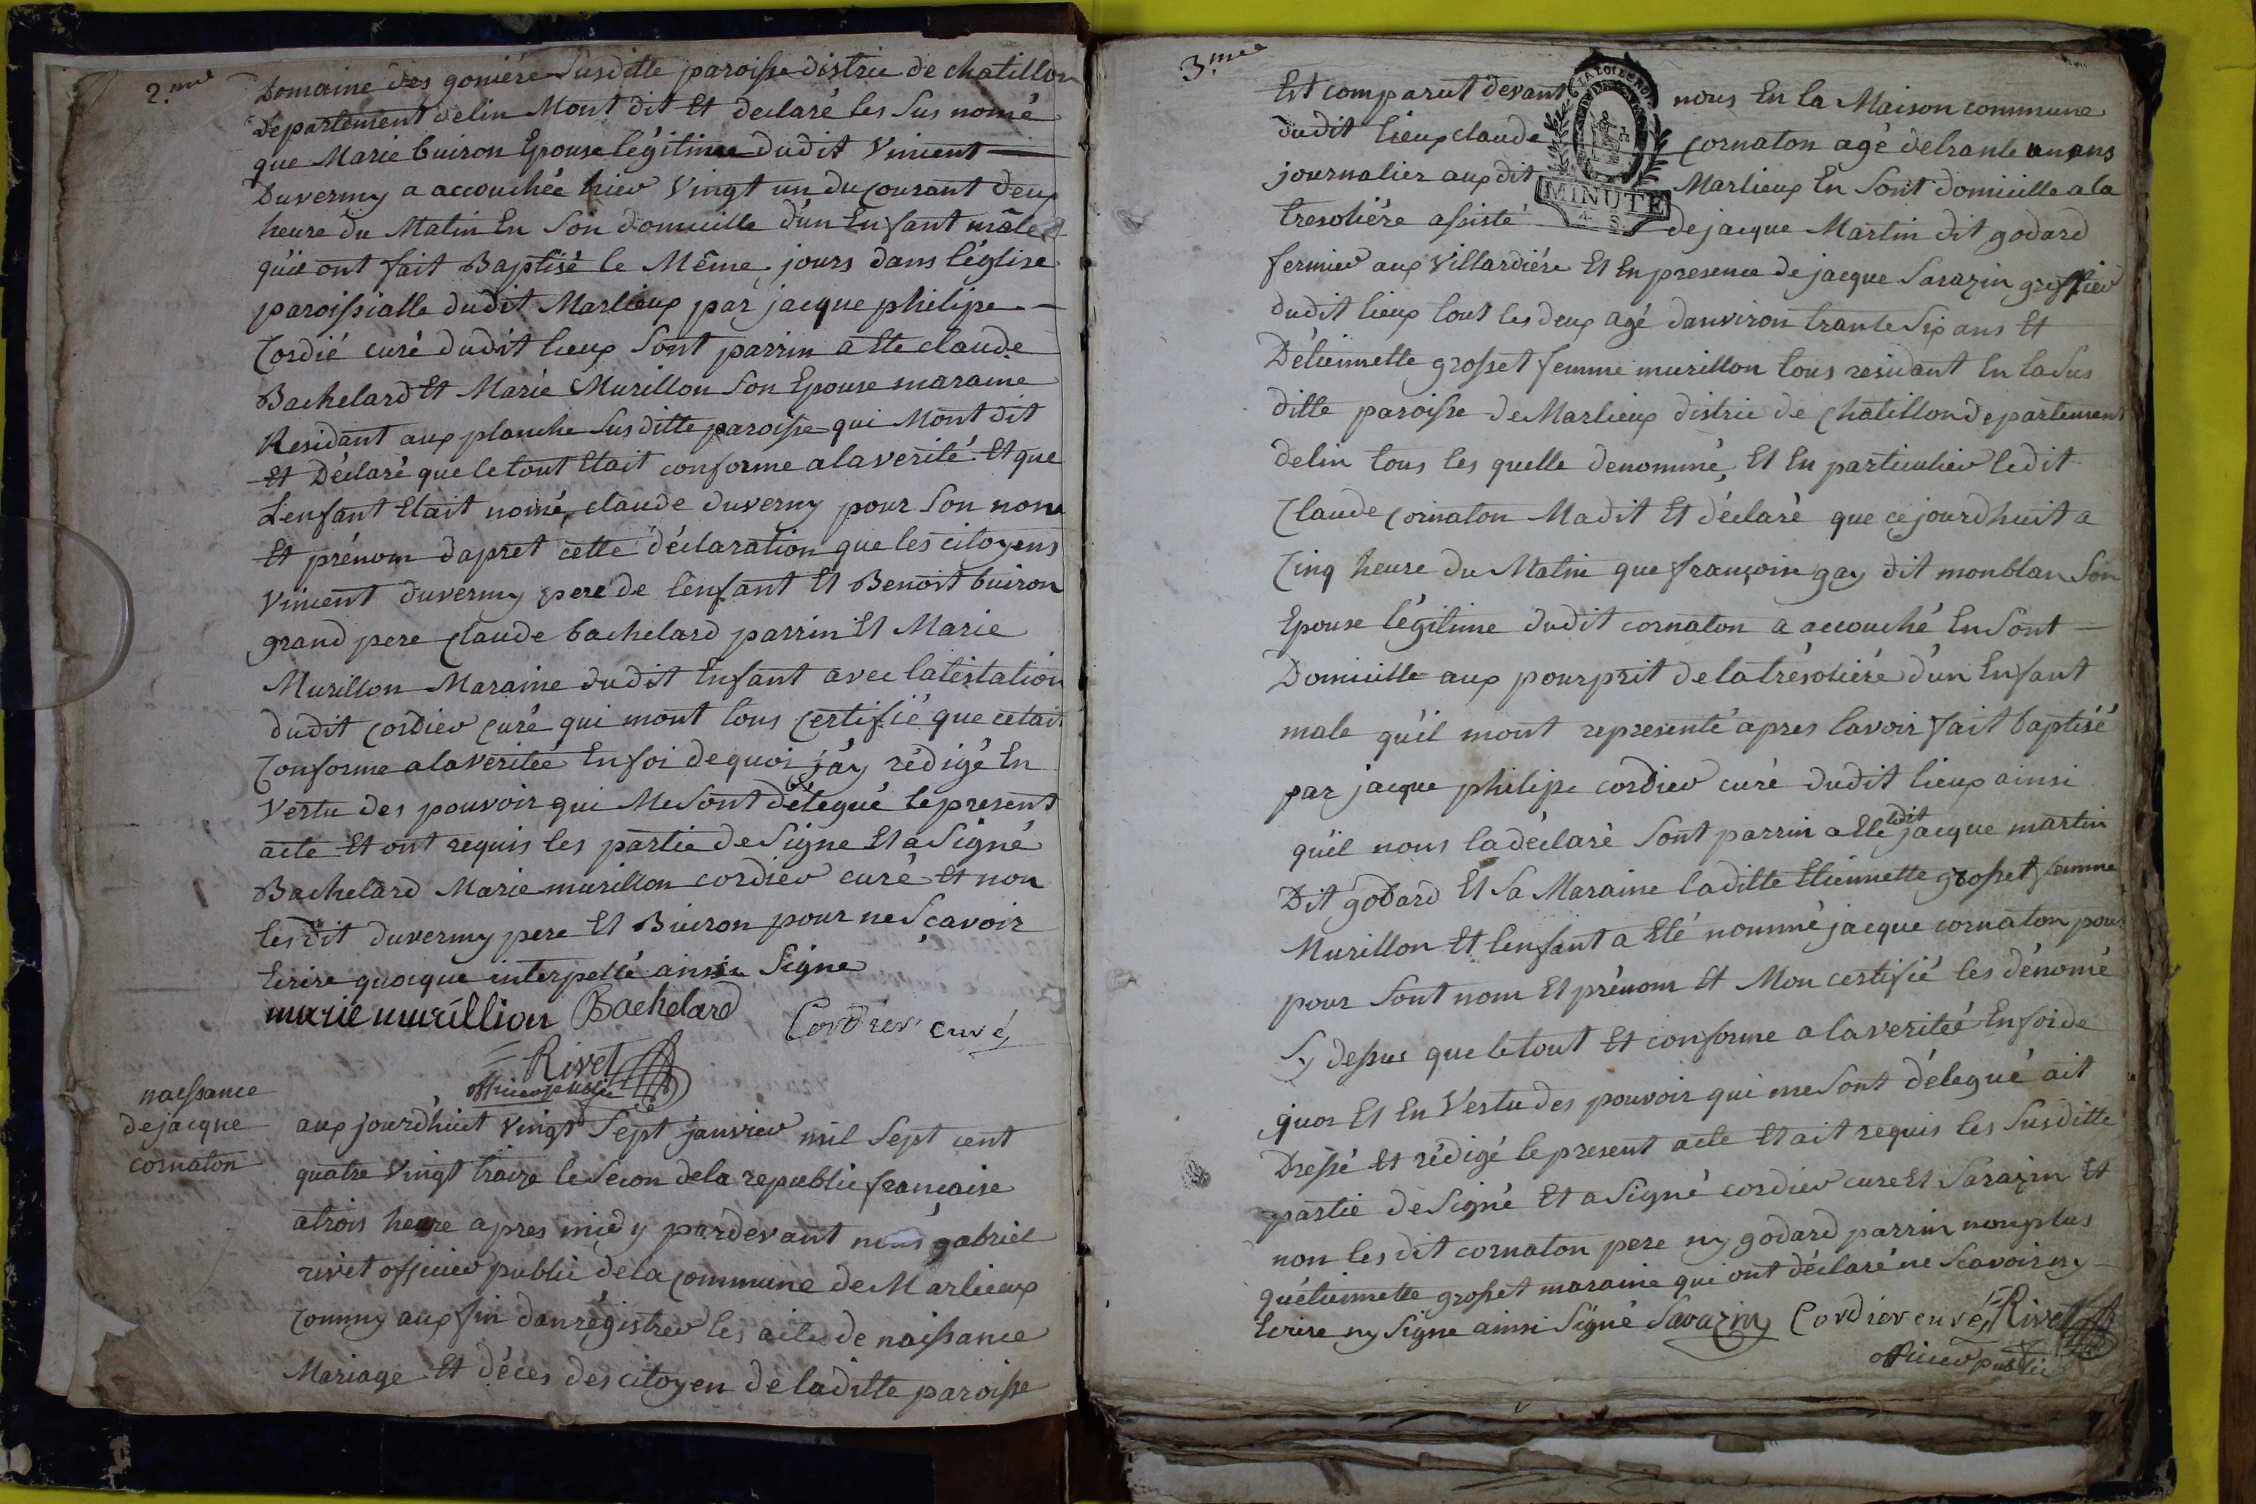 2.me
Domaine des goniére Susditte paroisse distric de chatillon
Departement delin Mont dit Et declaré les Sus nomé
que Marie buiron Epouse légitime dudit Vincent
Duverny a accouchée hier Vingt un du courant deux
heure du Matin En Son domicille d'un Enfant mâle
qu'il ont fait Baptisé le Même jours dans l'église
paroissialle dudit Marlieux par jacque philipe
Cordié curé dudit lieux Sont parrin a Ete claude
Bachelard Et Marie Murillon Son Epouse maraine
Residant aux planche Susditte paroisse qui Mont dit
Et Déclaré que le tout Etait conforme a la verité Et que
L'enfant Etait nomé, claude duverny pour Son nom
Et prénom dapret cette déclaration que les citoyens
Vincent duverny pere de lenfant Et Benoit buiron
grand pere claude bachelard parrin Et Marie
Murillon Maraine dudit Enfant avec latestation
dudit cordier curé qui mont tous certifié que cetait
Conforme a la veritée En foi de quoi j'ay rédigé En
Vertu des pouvoir qui Me Sont délegué le present
acte Et ont requis les partie de Signe Et a Signé
Bachelard Marie murillon cordier curé Et non
les dit duverny pere Et Buiron pour ne Scavoir
Ecrire quoique interpellé ainsi Signe
marie murillion Bachelard
Cordier curé
Rivet
officier public
naissance
de jacque
cornaton
aux jourdhuit vingt Sept janvier mil Sept cent
quatre Vingt traize le Secon dela republic francaise
atrois heure apres midy pardevant nous gabriel
rivet officier public dela commune de Marlieux
Commy aux fin danrégistrer les acte de naissance
Mariage Et déces des citoyen de laditte paroisse
3.me
Est comparut devant nous En la Maison commune
dudit lieux claude cornaton agé de trante un ans
journalier aux dit Marlieux En Sont domicille a la
tresoliére assisté de jacque Martin dit godard
fermier aux Villardiére Et En presence de jacque Sarazin greffier
dudit lieux tout les deux agé danviron trante Six ans Et
Détiennette grosset femme murillon tous residant En la Sus
ditte paroisse de Marlieux distric de chatillon departement
delin tous les quelle denommé, Et En particulier ledit
Claude cornaton Ma dit Et déclaré que cejourdhuit a
Cinq heure du Matin que françoise gay dit monblan Son
Epouse légitime dudit cornaton a accouché En Sont
Domicille aux pourprit de la trésoliére d'un Enfant
male qu'il mont representé apres lavoir fait baptisé
par jacque philipe cordier curé dudit lieux ainsi
qu'il nous la déclaré Sont parrin a Eté ledit jacque martin
Dit godard Et Sa Maraine laditte Etiennette grosset femme
Murillon Et lenfant a Eté nommé jacque cornaton pour
pour Sont nom Et prénom Et Mon certifié les dénomé
Sy dessus que le tout Et conforme a la veritéé En foi de
quoi Et En Vertu des pouvoir qui me Sont délegué ait
Dressé Et rédigé le present acte Et ait requis les Susditte
partie de Signé Et a Signé cordier curé Et Sarazin Et
non les dit cornaton pere ny godard parrin non plus
quétiennette grosset maraine qui ont déclaré ne Scavoir ny
Ecrire ny Signe ainsi Signé Sarazin Cordier curé Rivet
officier public
LA LOI ET LE ROI
MINUTE
4. S.